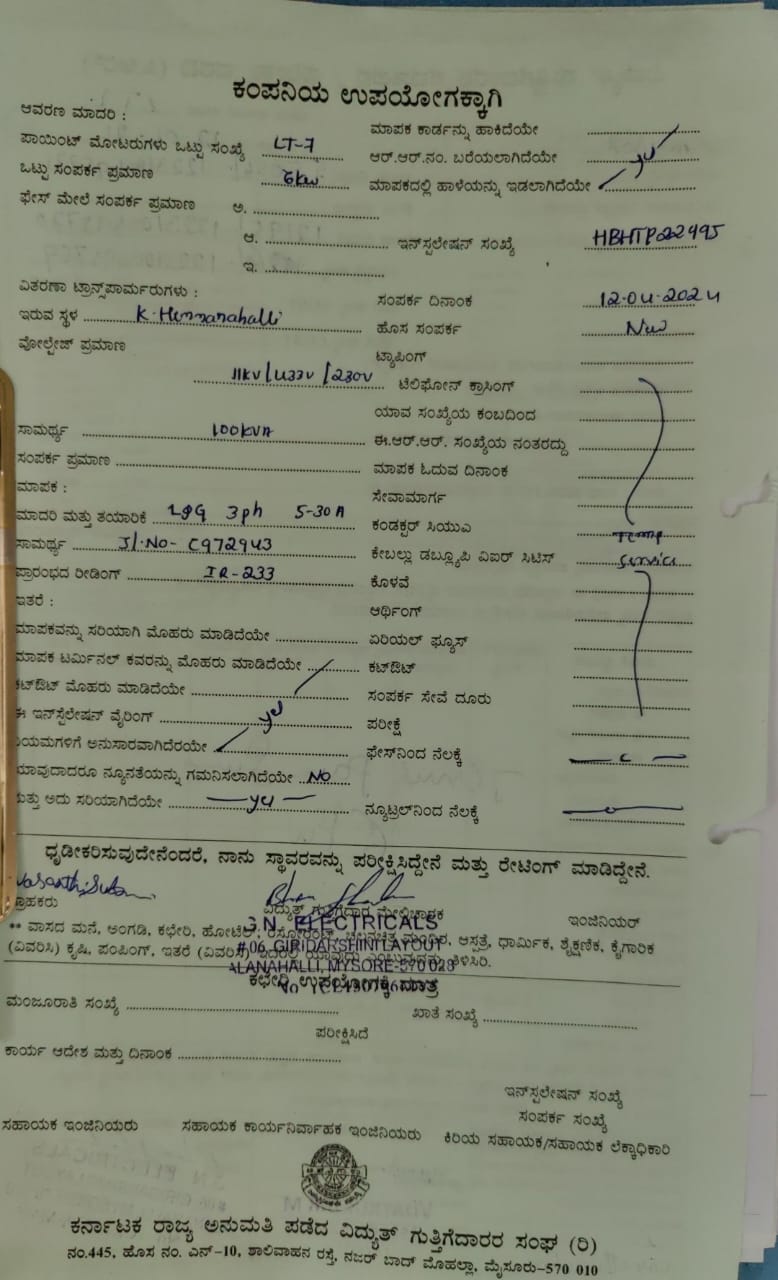 ಕಂಪನಿಯ ಉಪಯೋಗಕ್ಕಾಗಿ
ಆವರಣ ಮಾದರಿ :
ಮಾಪಕ ಕಾರ್ಡನ್ನು ಹಾಕಿದೆಯೇ
ಪಾಯಿಂಟ್ ಮೋಟರುಗಳು ಒಟ್ಟು ಸಂಖ್ಯೆ LT-7
ಆರ್.ಆರ್.ನಂ. ಬರೆಯಲಾಗಿದೆಯೇ
ಒಟ್ಟು ಸಂಪರ್ಕ ಪ್ರಮಾಣ 6kw
ಮಾಪಕದಲ್ಲಿ ಹಾಳೆಯನ್ನು ಇಡಲಾಗಿದೆಯೇ
ಫೇಸ್ ಮೇಲೆ ಸಂಪರ್ಕ ಪ್ರಮಾಣ ಅ.
ಆ. ಇನ್‌ಸ್ಟಲೇಷನ್ ಸಂಖ್ಯೆ HBHTP22495
ಇ.
ವಿತರಣಾ ಟ್ರಾನ್ಸ್‌ಪಾರ್ಮರುಗಳು :
ಸಂಪರ್ಕ ದಿನಾಂಕ 12-04-2024
ಇರುವ ಸ್ಥಳ
ಹೊಸ ಸಂಪರ್ಕ New
ವೋಲ್ಟೇಜ್ ಪ್ರಮಾಣ
ಟ್ಯಾಪಿಂಗ್
11kv/433v/230v ಟೆಲಿಫೋನ್ ಕ್ರಾಸಿಂಗ್
ಯಾವ ಸಂಖ್ಯೆಯ ಕಂಬದಿಂದ
ಸಾಮರ್ಥ್ಯ 100KVA
ಈ.ಆರ್.ಆರ್. ಸಂಖ್ಯೆಯ ನಂತರದ್ದು
ಸಂಪರ್ಕ ಪ್ರಮಾಣ
ಮಾಪಕ ಓದುವ ದಿನಾಂಕ
ಮಾಪಕ :
ಸೇವಾಮಾರ್ಗ
ಮಾದರಿ ಮತ್ತು ತಯಾರಿಕೆ L&G 3ph 5-30A
ಕಂಡಕ್ಟರ್ ಸಿಯುಎ Temp
ಸಾಮರ್ಥ್ಯ Sl.No- C972943
ಕೇಬಲ್ಲು ಡಬ್ಲ್ಯೂಪಿ ವಿಐರ್ ಸಿಟಿಸ್ Service
ಪ್ರಾರಂಭದ ರೀಡಿಂಗ್ IR-233
ಕೊಳವೆ
ಇತರೆ :
ಆರ್ಥಿಂಗ್
ಮಾಪಕವನ್ನು ಸರಿಯಾಗಿ ಮೊಹರು ಮಾಡಿದೆಯೇ
ಏರಿಯಲ್ ಫ್ಯೂಸ್
ಮಾಪಕ ಟರ್ಮಿನಲ್ ಕವರನ್ನು ಮೊಹರು ಮಾಡಿದೆಯೇ
ಕಟ್‌ಔಟ್
ಕಟ್‌ಔಟ್ ಮೊಹರು ಮಾಡಿದೆಯೇ
ಸಂಪರ್ಕ ಸೇವೆ ದೂರು
ಈ ಇನ್‌ಸ್ಟಲೇಷನ್ ವೈರಿಂಗ್
ಪರೀಕ್ಷೆ
ನಿಯಮಗಳಿಗೆ ಅನುಸಾರವಾಗಿದೆರಯೇ
ಫೇಸ್‌ನಿಂದ ನೆಲಕ್ಕೆ
ಯಾವುದಾದರೂ ನ್ಯೂನತೆಯನ್ನು ಗಮನಿಸಲಾಗಿದೆಯೇ NO
ಮತ್ತು ಅದು ಸರಿಯಾಗಿದೆಯೇ yes
ನ್ಯೂಟ್ರಲ್‌ನಿಂದ ನೆಲಕ್ಕೆ
ಧೃಡೀಕರಿಸುವುದೇನೆಂದರೆ, ನಾನು ಸ್ಥಾವರವನ್ನು ಪರೀಕ್ಷಿಸಿದ್ದೇನೆ ಮತ್ತು ರೇಟಿಂಗ್ ಮಾಡಿದ್ದೇನೆ.
ಗ್ರಾಹಕರು ವಿದ್ಯುತ್ ಗುತ್ತಿಗೆದಾರ ಮೇಲ್ವಿಚಾರಕ ಇಂಜಿನಿಯರ್
ELECTRICALS
** ವಾಸದ ಮನೆ, ಅಂಗಡಿ, ಕಛೇರಿ, ಹೋಟೆಲ್, ಆಸ್ಪತ್ರೆ, ಧಾರ್ಮಿಕ, ಶೈಕ್ಷಣಿಕ, ಕೈಗಾರಿಕ
#06, GIRIDARSHINI LAYOUT
(ವಿವರಿಸಿ) ಕೃಷಿ, ಪಂಪಿಂಗ್, ಇತರೆ ತಿಳಿಸಿರಿ.
ALANAHALLI, MYSORE-570 028
ಕಛೇರಿ ಉಪಯೋಗಕ್ಕೆ ಮಾತ್ರ
ಮಂಜೂರಾತಿ ಸಂಖ್ಯೆ ಖಾತೆ ಸಂಖ್ಯೆ
ಪರೀಕ್ಷಿಸಿದೆ
ಕಾರ್ಯ ಆದೇಶ ಮತ್ತು ದಿನಾಂಕ
ಇನ್‌ಸ್ಟಲೇಷನ್ ಸಂಖ್ಯೆ
ಸಂಪರ್ಕ ಸಂಖ್ಯೆ
ಸಹಾಯಕ ಇಂಜಿನಿಯರು ಸಹಾಯಕ ಕಾರ್ಯನಿರ್ವಾಹಕ ಇಂಜಿನಿಯರು ಕಿರಿಯ ಸಹಾಯಕ/ಸಹಾಯಕ ಲೆಕ್ಕಾಧಿಕಾರಿ
ಕರ್ನಾಟಕ ರಾಜ್ಯ ಅನುಮತಿ ಪಡೆದ ವಿದ್ಯುತ್ ಗುತ್ತಿಗೆದಾರರ ಸಂಘ (ರಿ)
ನಂ.445, ಹೊಸ ನಂ. ಎನ್-10, ಶಾಲಿವಾಹನ ರಸ್ತೆ, ನಜರ್ ಬಾದ್ ಮೊಹಲ್ಲಾ, ಮೈಸೂರು-570 010